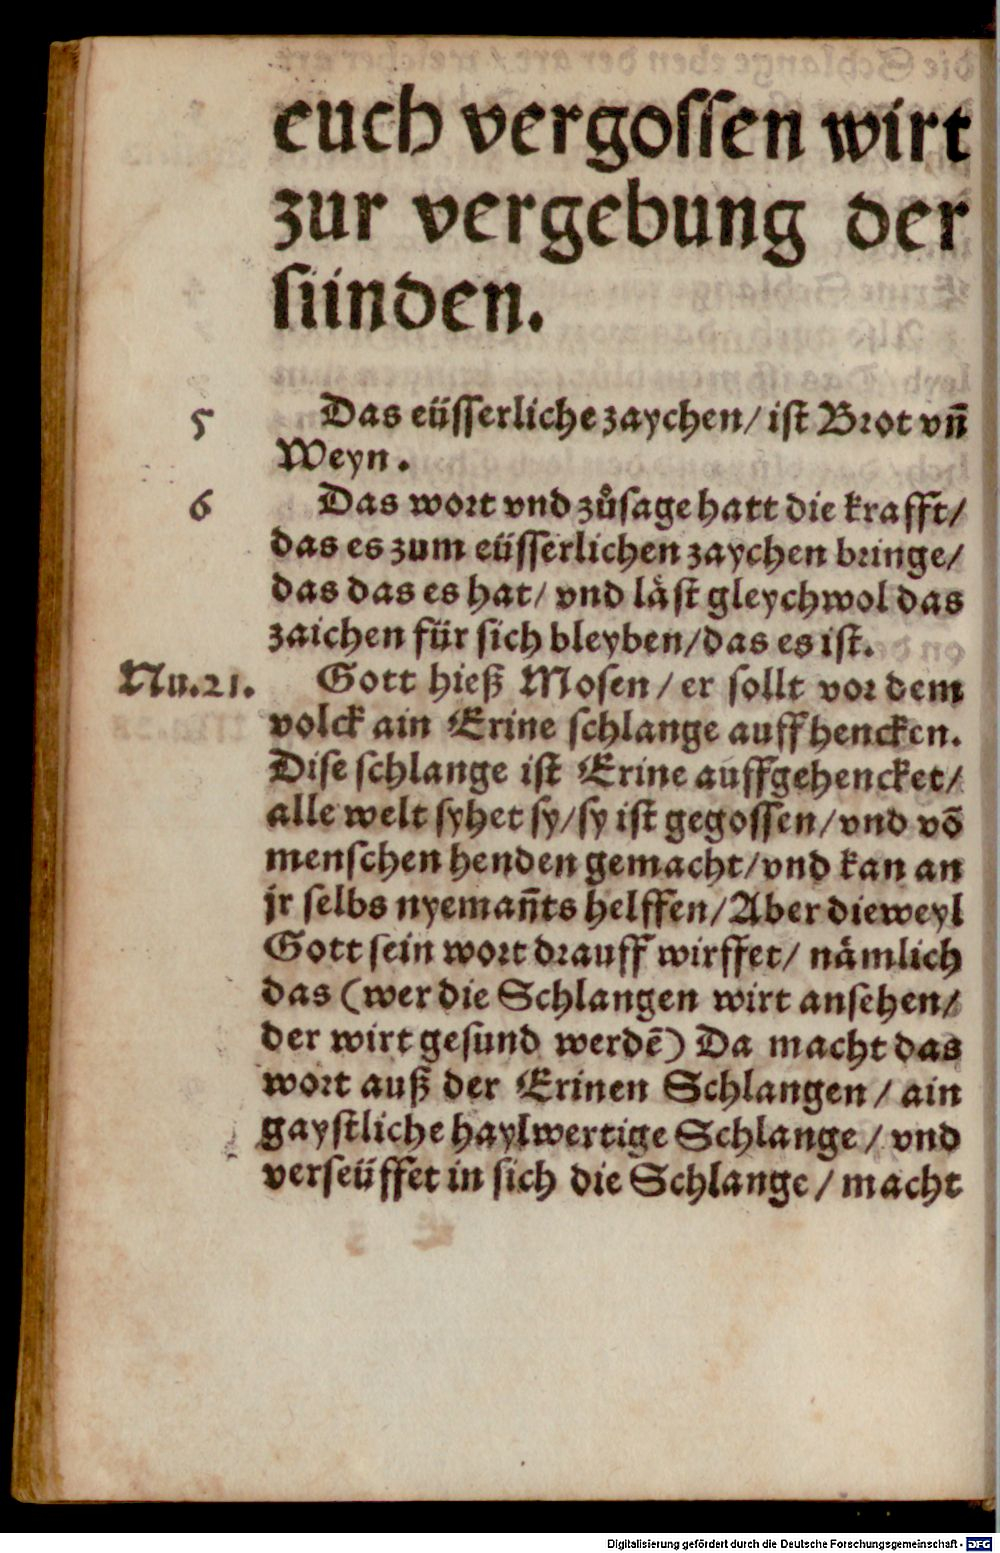 euch vergossen wirt
zur vergebung der
sünden.
5 Das eüsserliche zaychen/ ist Brot vn̄
Weyn.
6 Das wort vnd zůsage hatt die krafft/
das es zum eüsserlichen zaychen bringe/
das das es hat/ vnd låst gleychwol das
zaichen für sich bleyben/das es ist.
Nu.21. Gott hieß Mosen/ er sollt vor dem
volck ain Erine schlange auff hencken.
Dise schlange ist Erine auffgehencket/
alle welt syhet sy/sy ist gegossen/vnd vō
menschen henden gemacht/vnd kan an
jr selbs nyeman̄ts helffen/Aber dieweyl
Gott sein wort drauff wirffet/ nämlich
das (wer die Schlangen wirt ansehen/
der wirt gesund werdē) Da macht das
wort auß der Erinen Schlangen/ ain
gaystliche haylwertige Schlange/ vnd
verseüffet in sich die Schlange/ macht
Digitalisierung gefördert durch die Deutsche Forschungsgemeinschaft - DFG